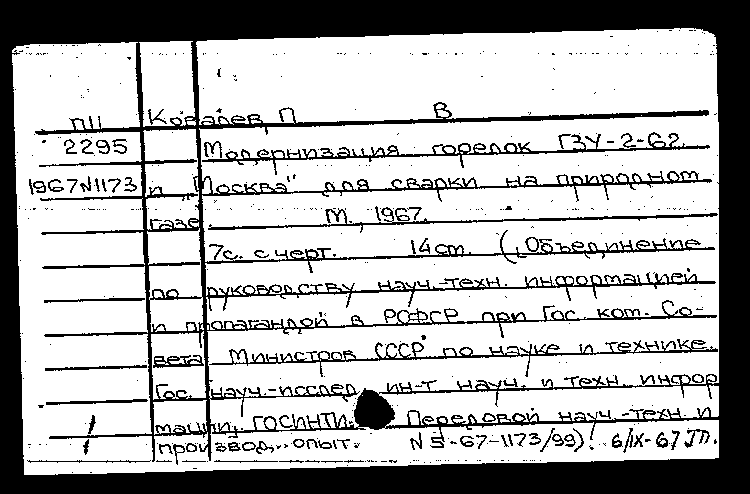 П11 Ковалев, П В
2295 Модернизация горелок ГЗУ-2-62
1967N1173 и „Москва" для сварки на природном
газе. М., 1967.
7с. с черт. 14см. (Объединение
по руководству науч.-техн. информацией
и пропагандой в РСФСР при Гос. ком. Со-
вета Министров СССР по науке и технике.
Гос. науч.-исслед. ин-т науч. и техн. инфор
мации, ГОСИНТИ. Передовой науч.-техн. и
производ. опыт. N 5-67-1173/99). 6/IX-67